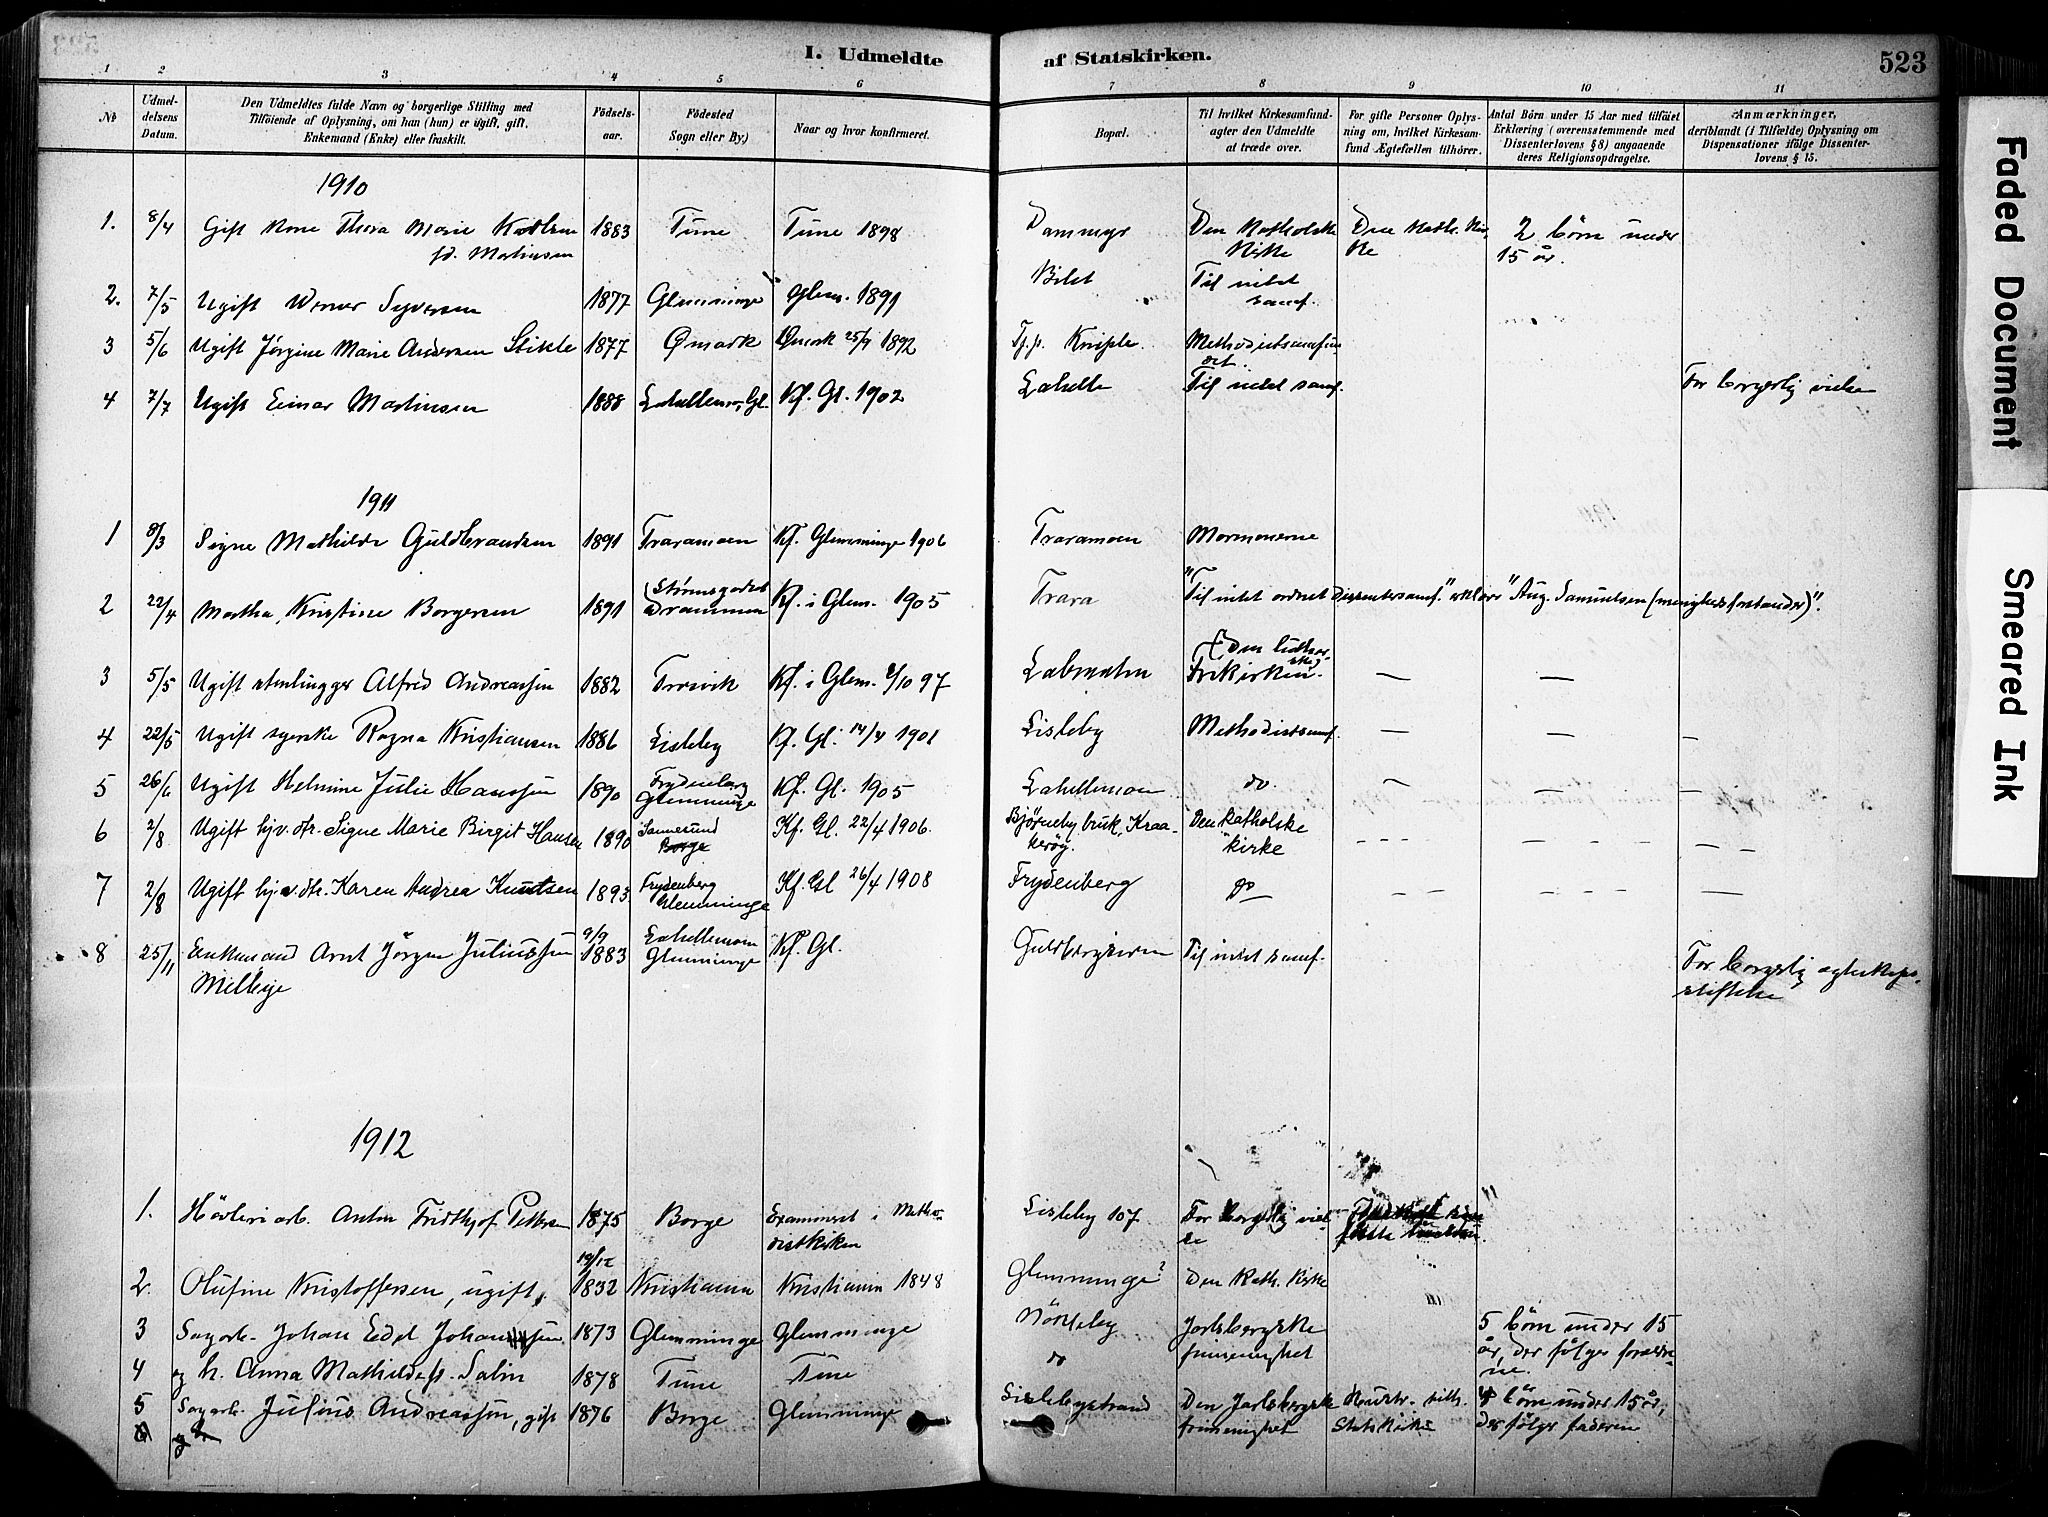 I. Udmeldte af Statskirken.
523
1 2 3 4 5 6 7 8 9 10 11
No
Udmeldelsens Datum.
Den Udmeldtes fulde Navn og borgerlige Stilling med
Tilføiende af Oplysning, om han (hun) er ugift, gift,
Enkemand (Enke) eller fraskilt.
Fødselsaar.
Fødested
Sogn eller By.)
Naar og hvor konfirmeret.
Bopæl.
Til hvilket Kirkesamfund
agter den Udmeldte
at træde over.
For gifte Personer Oplysning
om, hvilket Kirkesamfund
Ægtefællen tilhører.
Antal Børn under 15 Aar med tilføiet
Erklæring (overensstemmende med
Dissenterlovens § 8) angaaende
deres Religionsopdragelse.
Anmærkninger,
deriblandt (i Tilfælde) Oplysning om
Dispensationer ifølge Dissenterlovens
§ 15.
1910
1. 8/4 Gift Kone Thora Marie Karlsen 1883 Tune Tune 1898 Dammyr Den Katholske Den Kath. Kir- 2 børn under
fd. Martinsen Kirke ke 15 år.
2. 7/5 Ugift Werner Syversen 1877 Glemminge Glem. 1891 Bilet Til intet
samf.
3 5/6 Ugift Jørgine Marie Andersen Stikle 1877 Ømark Ømark 25/9 1892 Tj.p. Kniple Methodistsamfun-
det.
4 7/7 Ugift Einar Martinsen 1888 Lahellemo, Gl. Kf. Gl. 1902 Lahelle Til intet samf. For borgerlig vielse
1911
1 8/3 Signe Mathilde Guldbrandsen 1891 Traramoen Kf. Glemminge 1906 Traramoen Mormonerne
2 22/4 Martha Kristine Borgersen 1891 Strømsgodset Drammen Kf. i Glem. 1905 Trara "Til intet ordnet Dissentersamf." erklærer "Aug. Samuelsen (menighedsforstander)".
3 5/5 Ugift stenhugger Alfred Andreassen 1882 Trosvik Kf. i Glem. 3/10 97 (Den lutherske) Frikirken. — —
4 22/5 Ugift syerske Ragna Kristiansen 1886 Lisleby Kf. Gl. 14/4 1901 Lisleby Methodistsamf. — — —
5 26/6 Ugift Helmine Julie Hanssen 1890 Frydenberg Glemminge Kf. Gl. 1905 Lahellemoen do. — — —
6 2/8 Ugift hjv. dtr. Signe Marie Birgit Hansen 1890 Sannesund Borge Kf. Gl. 22/4 1906. Bjørneby bruk, Kraa-
kerøy. Den katholske
kirke
7 2/8 Ugift hjv. dtr. Karen Andrea Knutsen 1893 Frydenberg Glemminge Kf. Gl 26/4 1908 Frydenberg do
8 25/11 Enkemand Arnt Jørgen Juliussen 9/9 1883 Lahellemoen Glemminge Kf. Gl. Til intet samf. For borgerlig ægteskaps-
stiftelse
1912
1. Høvleriarb. Anton Fridthjof Pettersen 1875 Borge Examineret i Metho-
distkirken Lisleby 107 For borgerlig viel-
se
2. Olufine Kristoffersen, ugift, 19/12 1832 Kristiania Kristiania 1848 Glemminge? Den Kath. Kirke
3 Sagarb. Johan Edel Johanssen 1873 Glemminge Glemminge Nörkleby Jarlsbergske
frimenighet 5 børn under 15
år, der følger foræld-
rene.
4 og h. Anna Mathilde f. Salin 1878 Tune Tune do
5 Sagarb. Julius Andreassen, gift 1876 Borge Glemminge Lislebystrand Den Jarlsbergske
frimenighet Hustr. tilh.
Statskirke 4 børn under 15 år,
der følger faderen
Faded Document
Smeared Ink